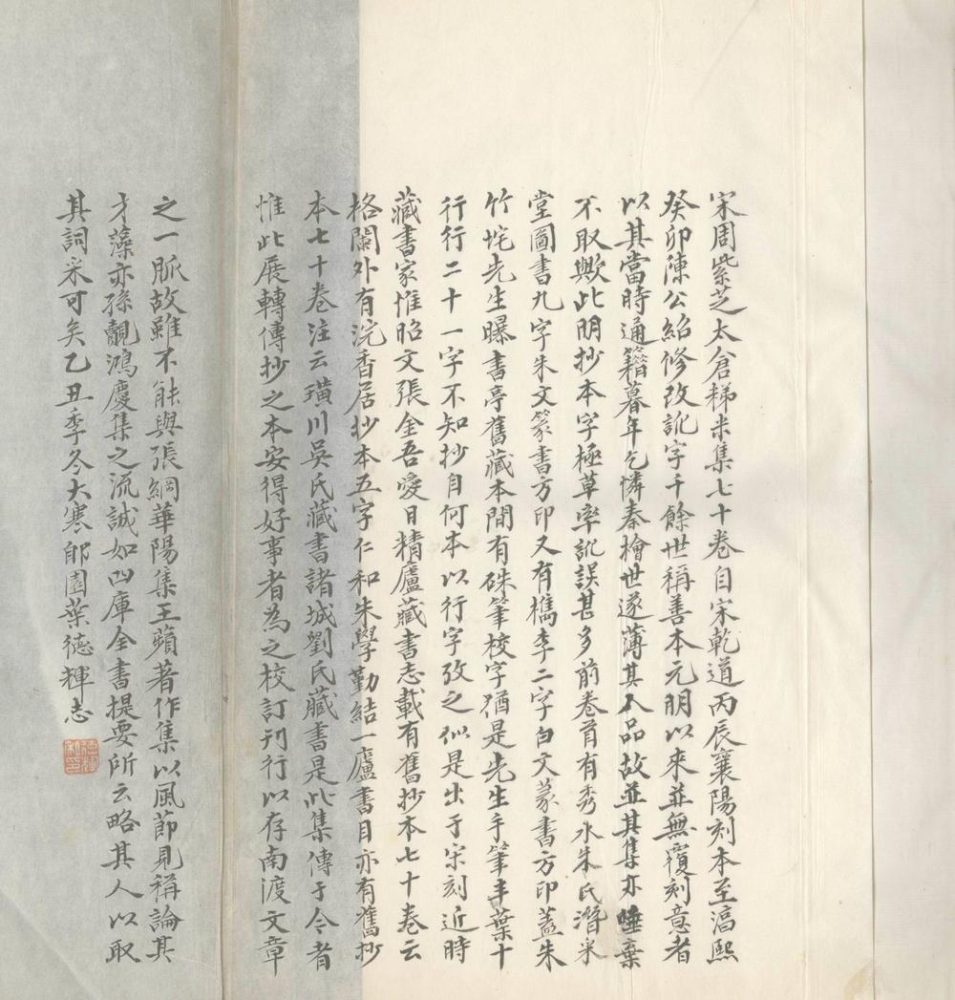 宋周紫芝太倉稊米集七十卷自宋乾道丙辰襄陽刻本至淳熙
癸卯陳公紹修改訛字千餘世稱善本元明以來並無覆刻意者
以其當時通籍暮年乞憐秦檜世遂薄其人品故並其集亦唾棄
不取歟此明抄本字極草率訛誤甚多前卷首有秀水朱氏潛采
堂圖書九字朱文篆書方印又有檇李二字白文篆書方印蓋朱
竹垞先生曝書亭舊藏本間有硃筆校字猶是先生手筆半葉十
行行二十一字不知抄自何本以行字攷之似是出于宋刻近時
藏書家惟昭文張金吾愛日精廬藏書志載有舊抄本七十卷云
格闌外有浣香居抄本五字仁和朱學勤結一廬書目亦有舊抄
本七十卷注云璜川吳氏藏書諸城劉氏藏書是此集傳于今者
惟此展轉傳抄之本安得好事者為之校訂刊行以存南渡文章
之一脈故雖不能與張綱華陽集王蘋著作集以風節見稱論其
才藻亦孫覿鴻慶集之流誠如四庫全書提要所云略其人以取
其詞采可矣乙丑季冬大寒郋園葉德輝志